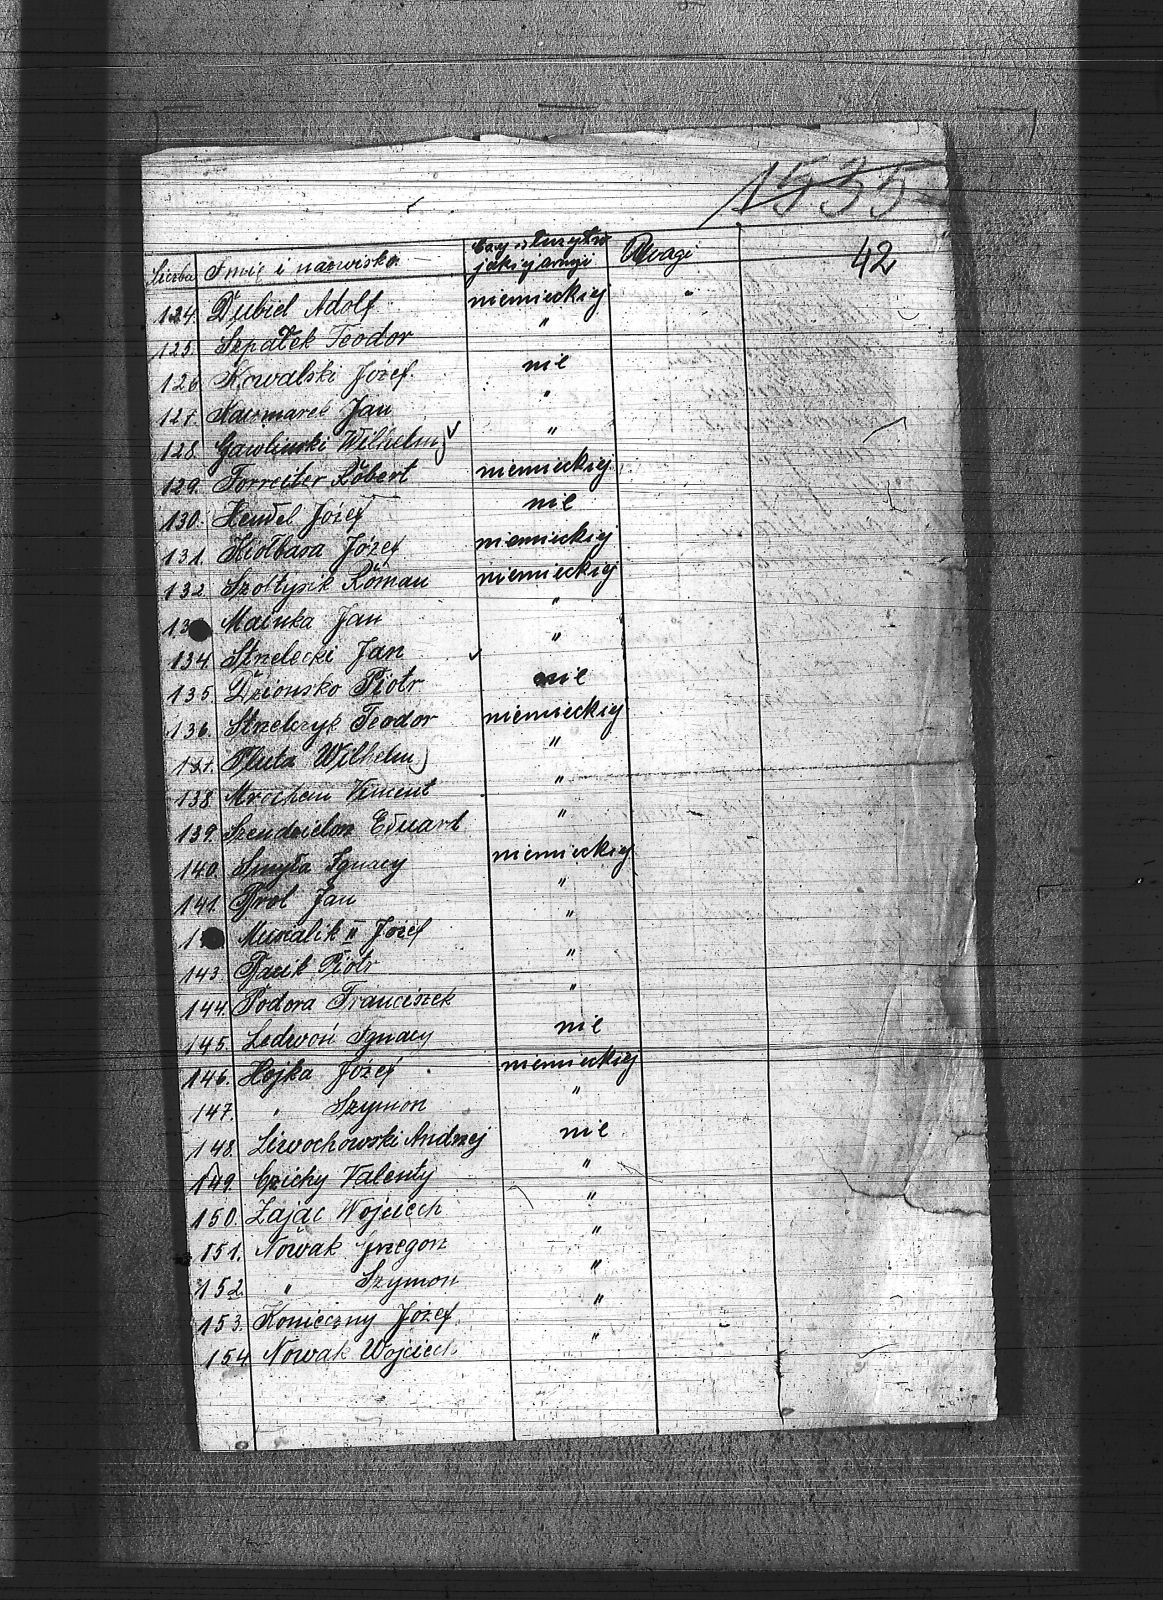 1535
42
Liczba Imię i nazwisko Czy służył w jakiej armji Uwagi
124. Dubiel Adolf niemieckiej "
125. Szpałek Teodor "
126. Kowalski Józef. nie
127. Kaczmarek Jan "
128. Gawlinski Wilhelm "
129. Forreiter Robert niemieckiej
130. Hendel Józef nie
131. Kiołbasa Józef niemieckiej
132. Szołtysik Roman niemieckiej
13 Mainka Jan "
134. Strzelecki Jan "
135. Dzionsko Piotr nie
136. Strzelczyk Teodor niemieckiej
137. Pluta Wilhelm "
138 Mrochem Vincent "
139. Szendzielorz Eduart "
140. Smyła Ignacy niemieckiej
141. Grol Jan "
1 Musialik II Józef "
143. Pazik Piotr "
144. Podora Franciszek "
145. Ledwoń Ignacy nie
146. Hojka Józef niemieckiej
147. " Szymon "
148. Liwochowski Andrzej nie
149. Czichy Valenty "
150. Zając Wojciech "
151. Nowak Grzegorz "
152. " Szymon "
153. Konieczny Józef "
154 Nowak Wojciech "